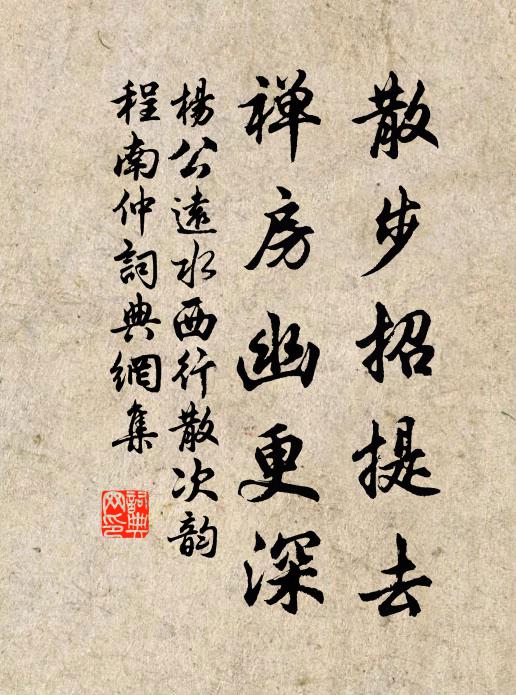 散步招提去
禅房幽更深
楊公遠水西行散次韵
程南仲詞典網集
詞典網印